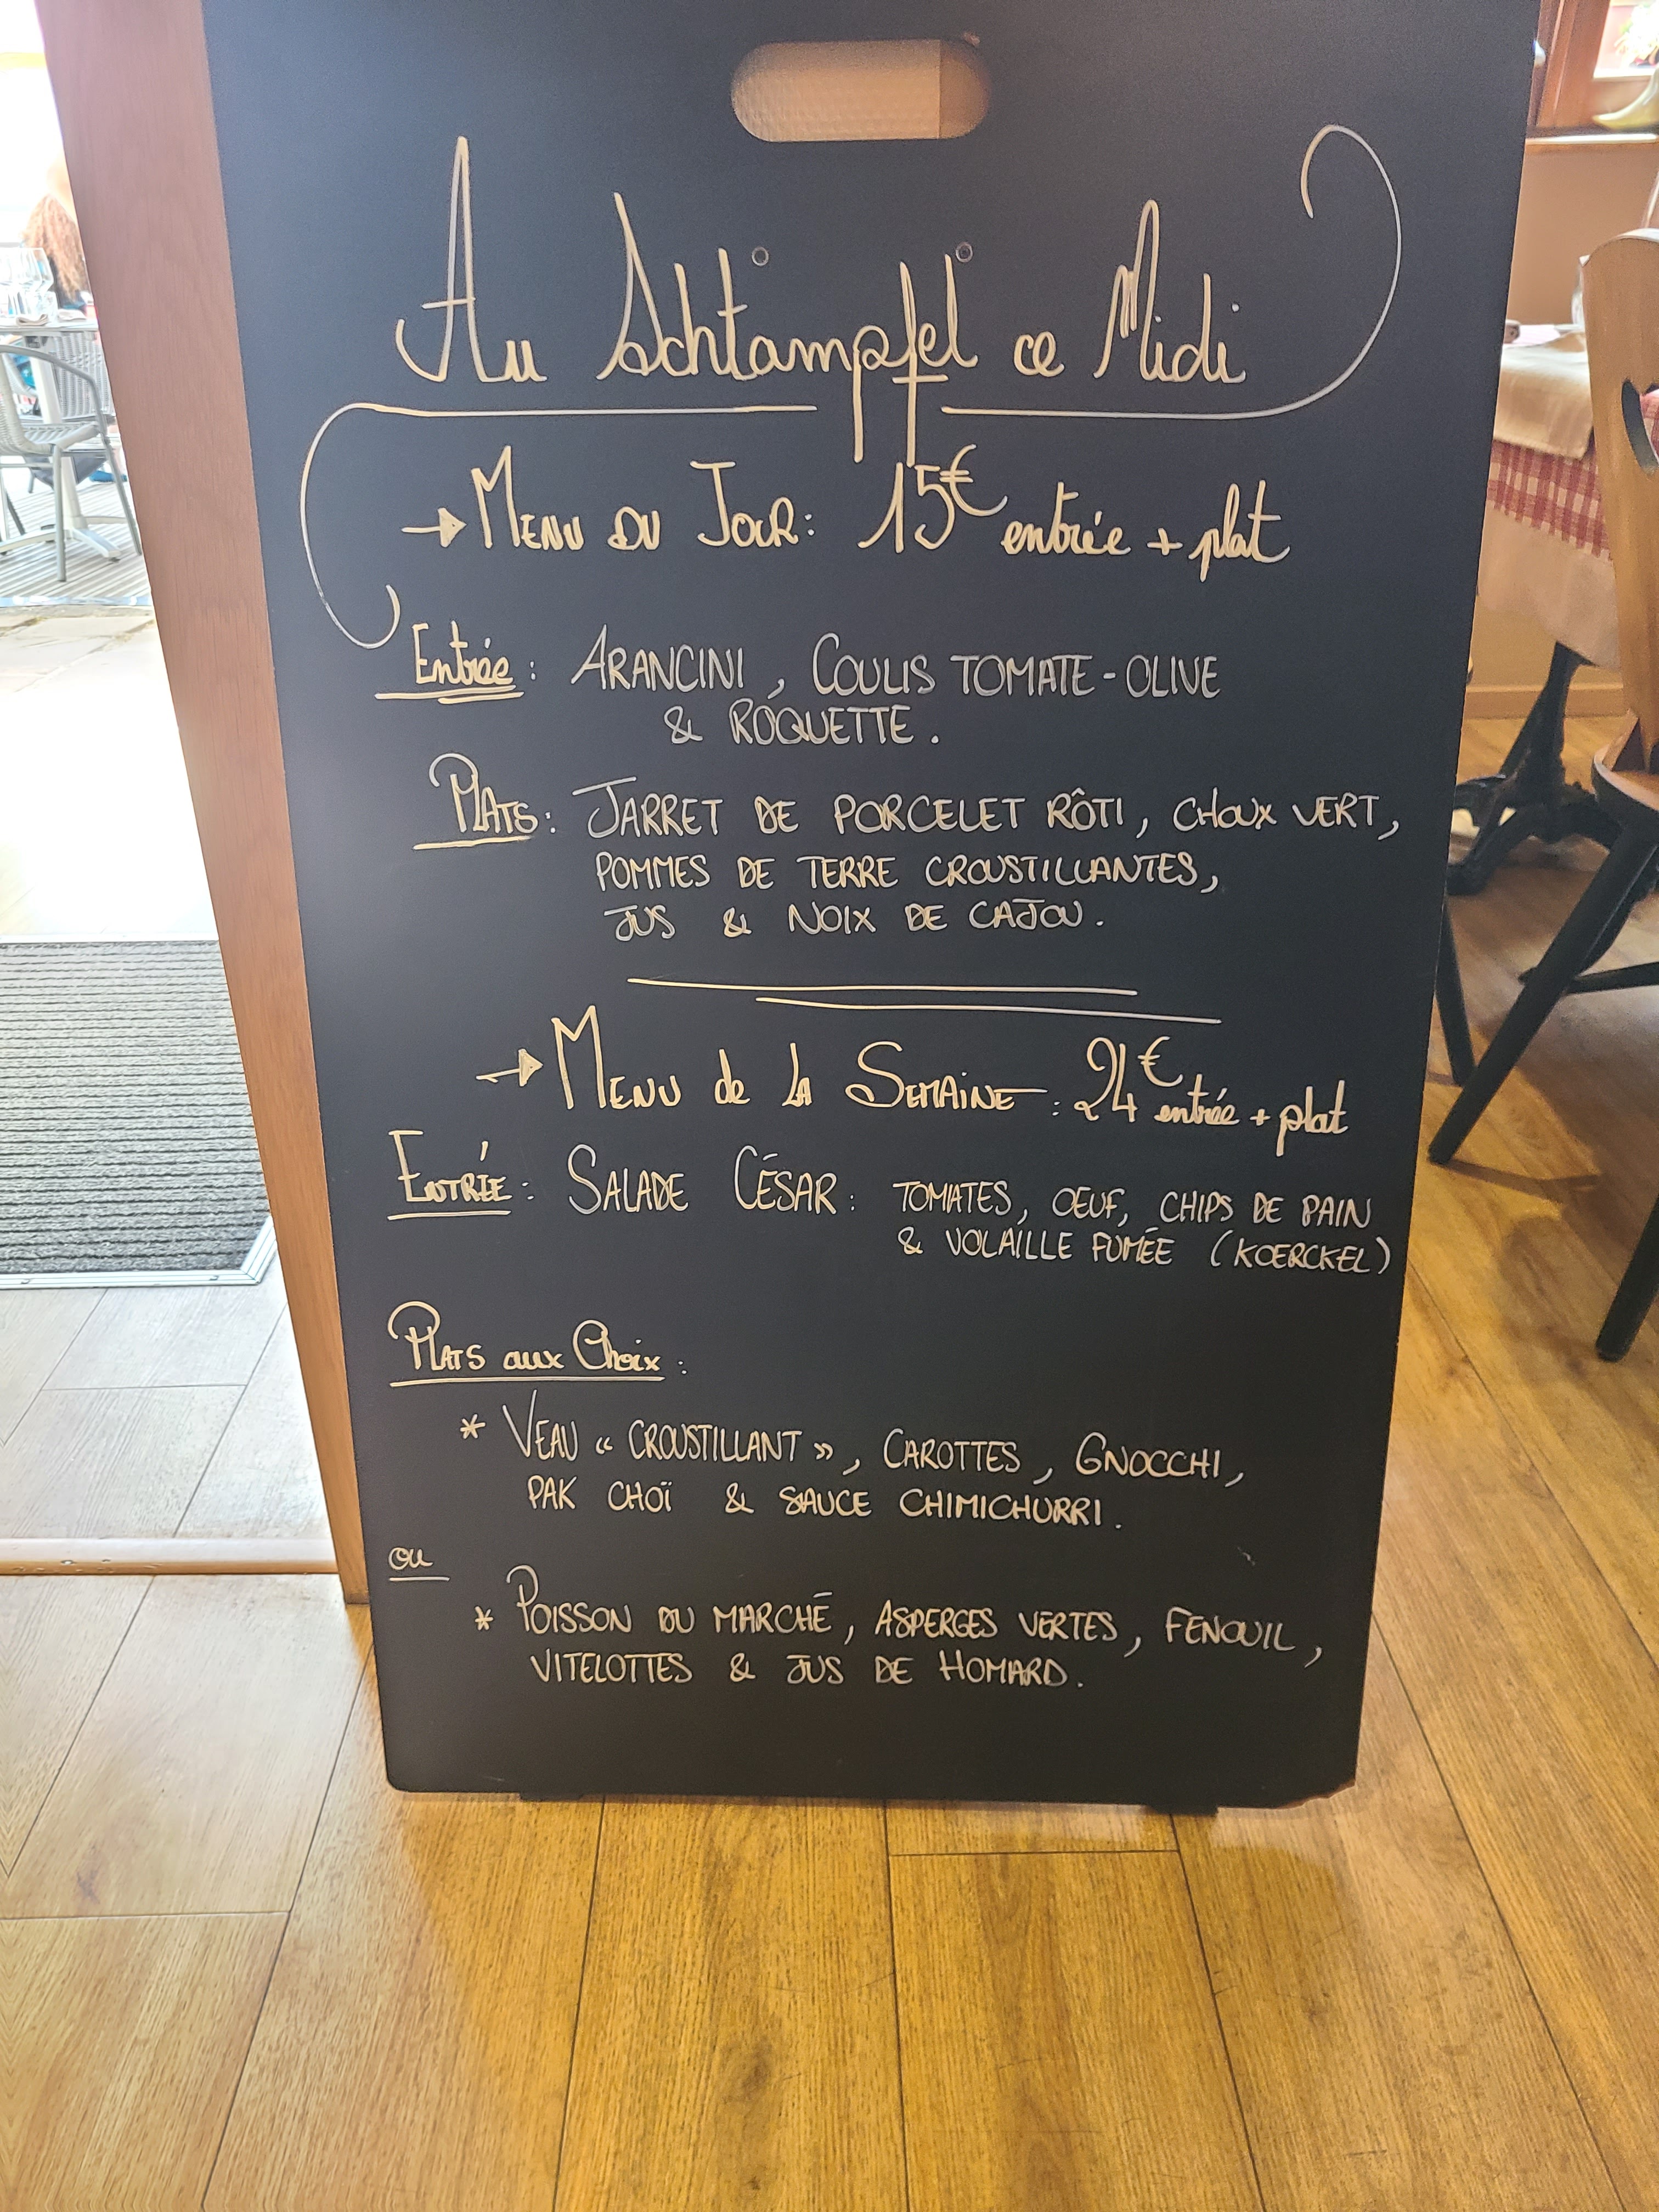 Au Schtampfel ce Midi
→ Menu du Jour: 15€ entrée + plat
Entrée : Arancini, Coulis tomate-olive
& roquette.
Plats : Jarret de porcelet rôti, choux vert,
pommes de terre croustillantes,
jus & noix de cajou.
→ Menu de la Semaine : 24€ entrée + plat
Entrée : Salade César : tomates, œuf, chips de pain
& volaille fumée (Koerckel)
Plats aux Choix :
* Veau « croustillant », Carottes, Gnocchi,
pak choï & sauce chimichurri.
ou
* Poisson du marché, asperges vertes, fenouil,
vitelottes & jus de Homard.